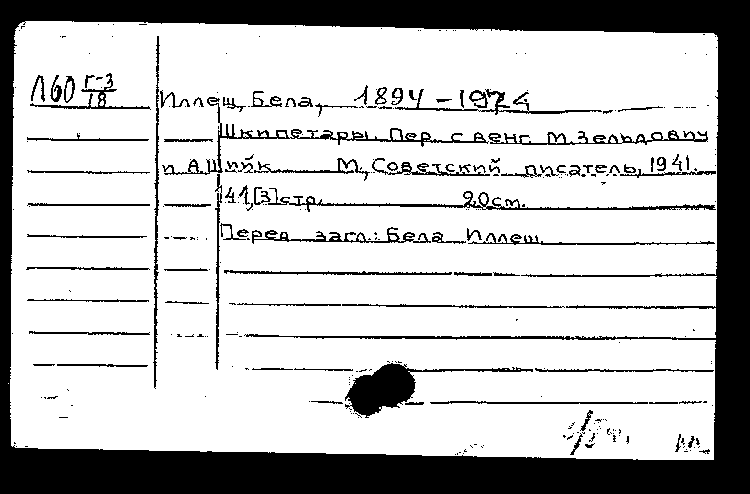 Л60 Г-3/18
Иллеш, Бела, 1894-1974
Шкипетары. Пер. с венг. М. Зельдович
и А. Шийк М., Советский писатель, 1941.
141,[3]стр. 20см.
Перед загл.: Бела Иллеш.